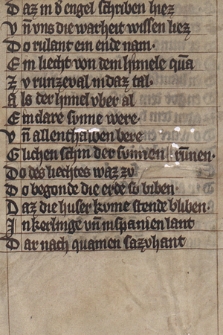 D az in d͛ engel schriben hiez
V n̄ vns die warheit wissen liez
D o rulant ein ende nam.
E in liecht von dem himele quā
Z v runzeval in daz tal.
A ls der himel vber al
E in clare sunne were
V n̄ allenthalben bere
G lichen schin der sunnen
D o des liechtes waz zv
D o begonde die erde so biben.
D az die huser kvme stende bliben.
I n kerlinge vn̄ in spanien lant
D ar nach quamen sazvhant